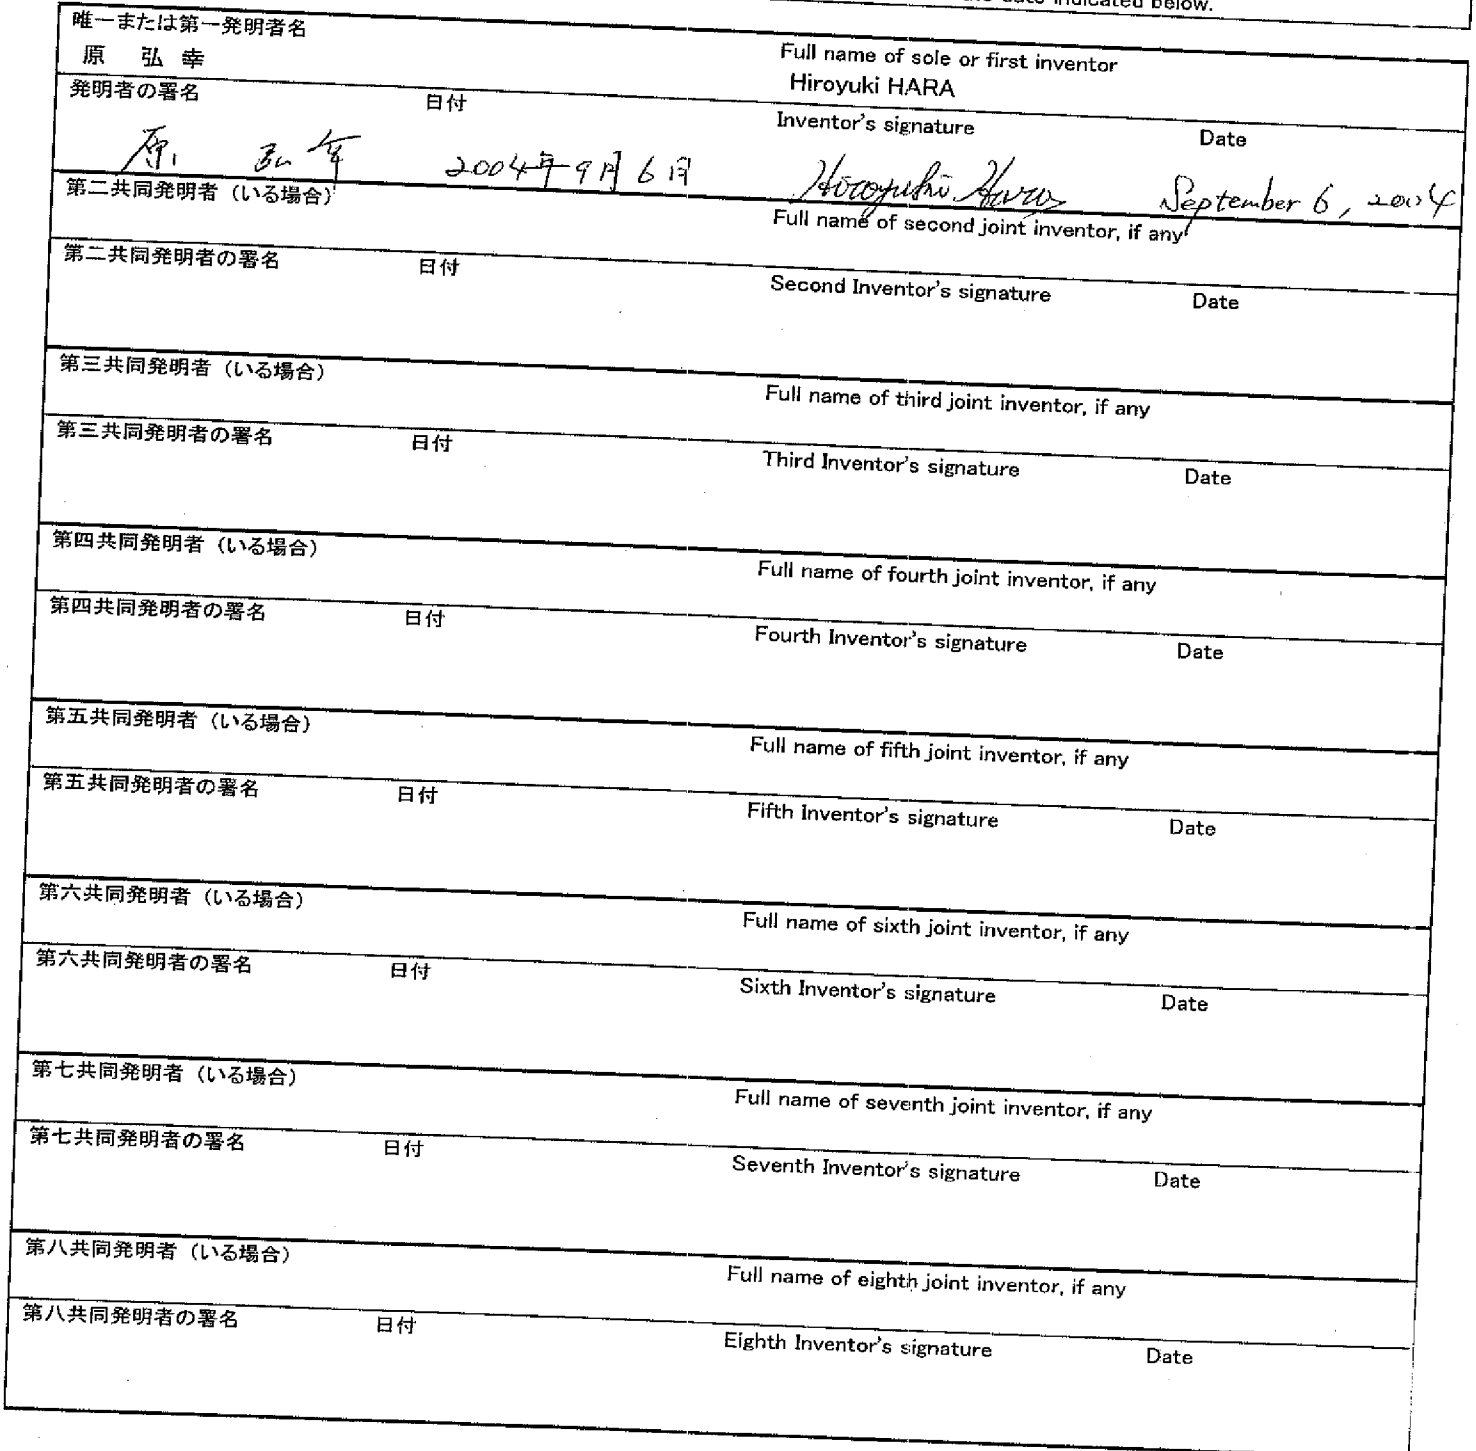 date indicated below.
唯一または第一発明者名 Full name of sole or first inventor
原 弘 幸 Hiroyuki HARA
発明者の署名 日付 Inventor's signature Date
原 弘 幸 2004年9月6日 Hiroyuki Hara September 6, 2004
第二共同発明者（いる場合） Full name of second joint inventor, if any
第二共同発明者の署名 日付 Second Inventor's signature Date
第三共同発明者（いる場合） Full name of third joint inventor, if any
第三共同発明者の署名 日付 Third Inventor's signature Date
第四共同発明者（いる場合） Full name of fourth joint inventor, if any
第四共同発明者の署名 日付 Fourth Inventor's signature Date
第五共同発明者（いる場合） Full name of fifth joint inventor, if any
第五共同発明者の署名 日付 Fifth Inventor's signature Date
第六共同発明者（いる場合） Full name of sixth joint inventor, if any
第六共同発明者の署名 日付 Sixth Inventor's signature Date
第七共同発明者（いる場合） Full name of seventh joint inventor, if any
第七共同発明者の署名 日付 Seventh Inventor's signature Date
第八共同発明者（いる場合） Full name of eighth joint inventor, if any
第八共同発明者の署名 日付 Eighth Inventor's signature Date